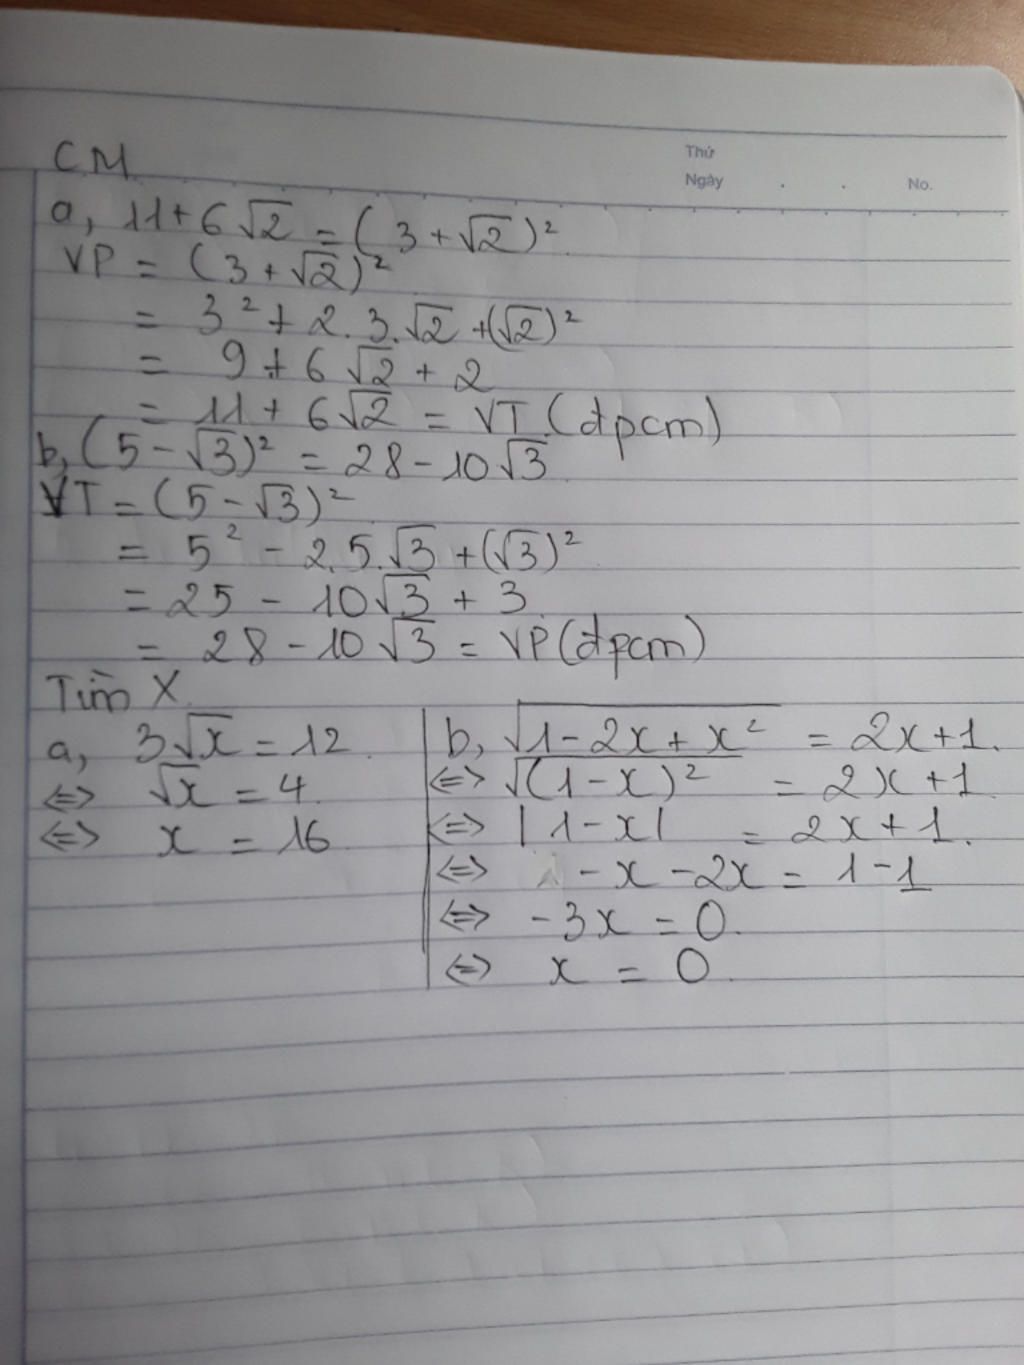 CM
Thứ
Ngày . . No.
a, 11+6√2 = (3+√2)²
VP = (3+√2)²
= 3² + 2.3.√2 +(√2)²
= 9 + 6√2 + 2
= 11 + 6√2 = VT (đpcm)
b, (5-√3)² = 28-10√3
VT = (5-√3)²
= 5² - 2.5.√3 +(√3)²
= 25 - 10√3 + 3
= 28 - 10√3 = VP (đpcm)
Tìm X
a, 3√x = 12
⇔ √x = 4
⇔ x = 16
b, √1-2x+x² = 2x+1.
⇔ √(1-x)² = 2x+1
⇔ |1-x| = 2x+1.
⇔ -x-2x = 1-1
⇔ -3x = 0.
⇔ x = 0